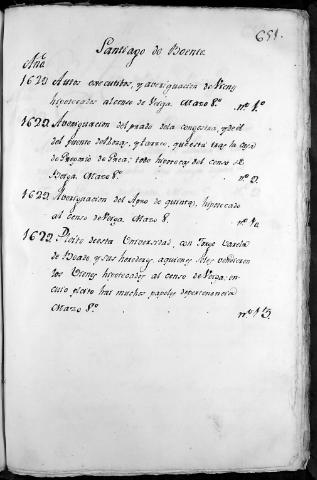 651.
Santiago de Boente
Año
1622. Autos executibos, y averiguacion de Vienes
hipotecados al censo de Veiga. Mazo 8.º nº 1º
1622. Averiguacion del prado de la congostra, y del
del puente del Boza, y Barro, questa tras la casa
de Gregorio de Prea; todo hipotecas del censo de
Beiga. Mazo 8.º nº 2.
1622. Averiguacion del Agro de quintas, hipotecado
al Censo de Veiga. Mazo 8. nº
1622. Pleito de esta Universidad, con Jorge Varela
de Boado y sus herederos, aquienes se les vendieron
los Vienes hipotecados al censo de Veiga; en
cuio pleito hai muchos papeles de pertenencia
Mazo 8.º nº 13.